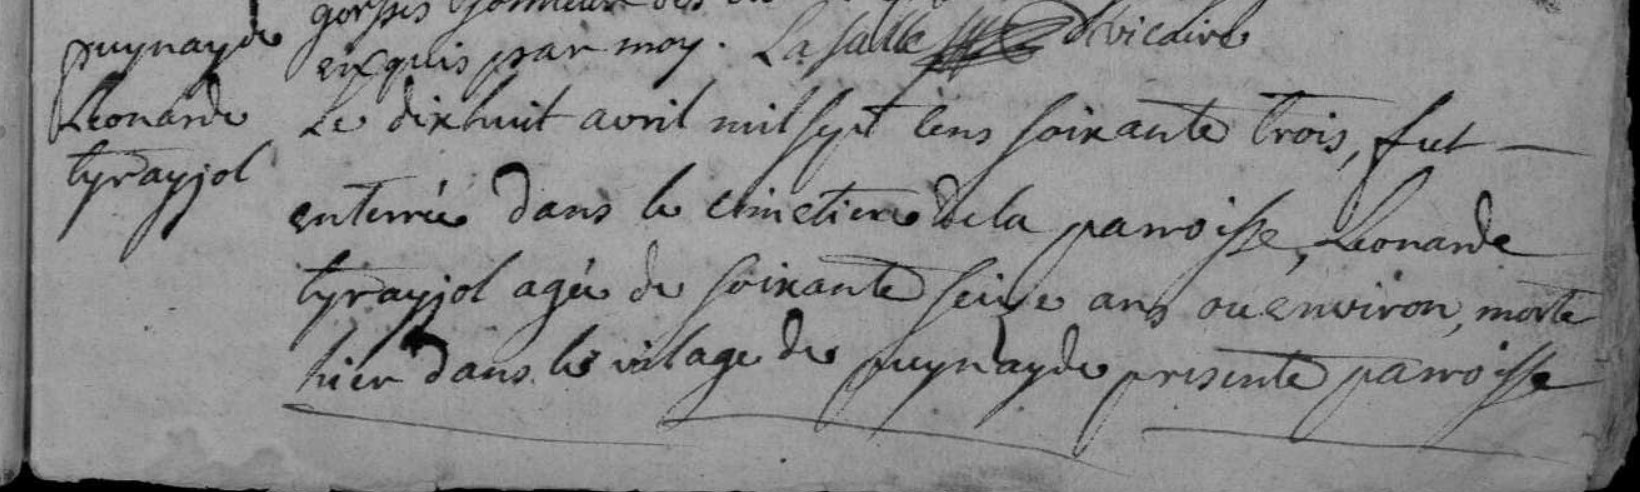 puynayde
enquis par moy. Lasalle vicaire
Leonarde
tyrayjol
Le dixhuit avril mil sept cens soixante trois, fut
enterrée dans le cimetiere de la parroisse, Leonarde
tyrayjol agée de soixante seize ans ou environ, morte
hier dans le vilage de puynayde presente parroisse